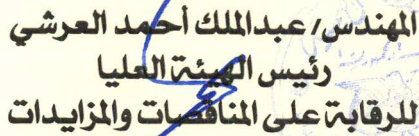 المهندس/ عبدالملك أحمد العرشي
رئيس الهيئة العليا
للرقابة على المناقصات والمزايدات